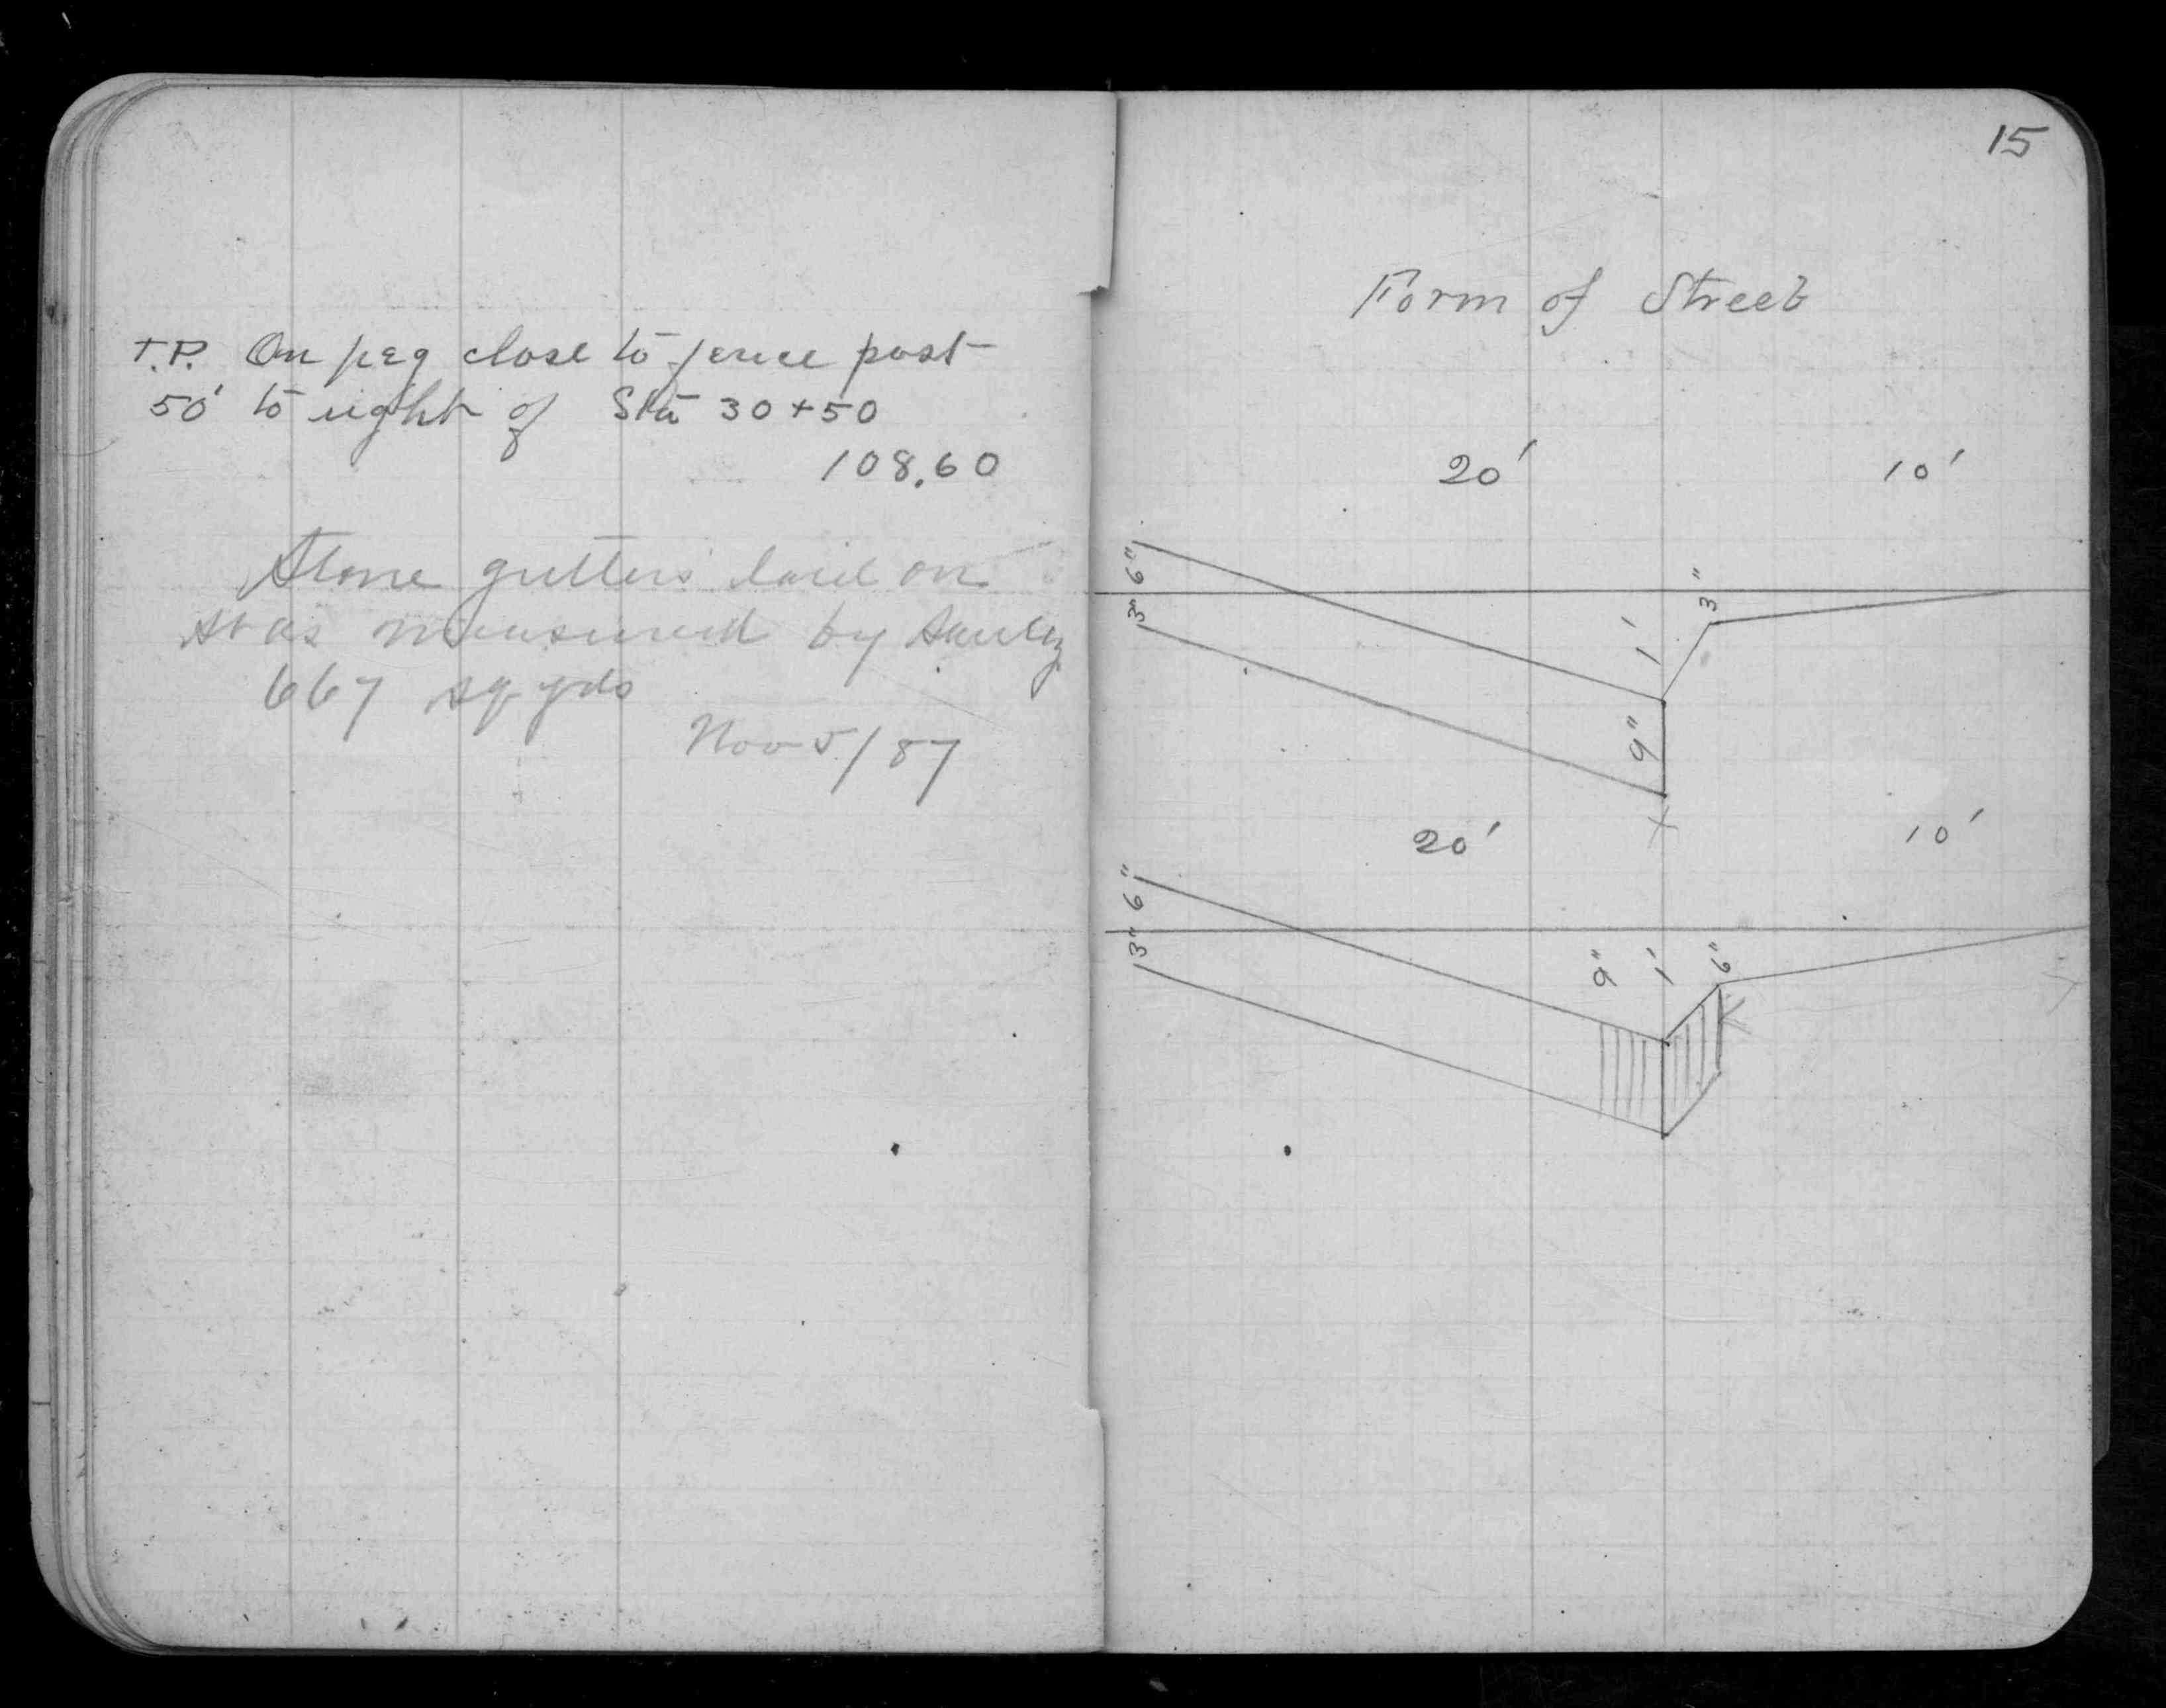 T.P. On peg close to fence post
50' to right of Sta 30+50
108.60
Stone gutters laid on
as measured by
667 sq yds
Nov 5/87
15
Form of Street
20' 10'
6"
3"
1' 3"
9"
20' 10'
6"
3"
9" 1' 6"